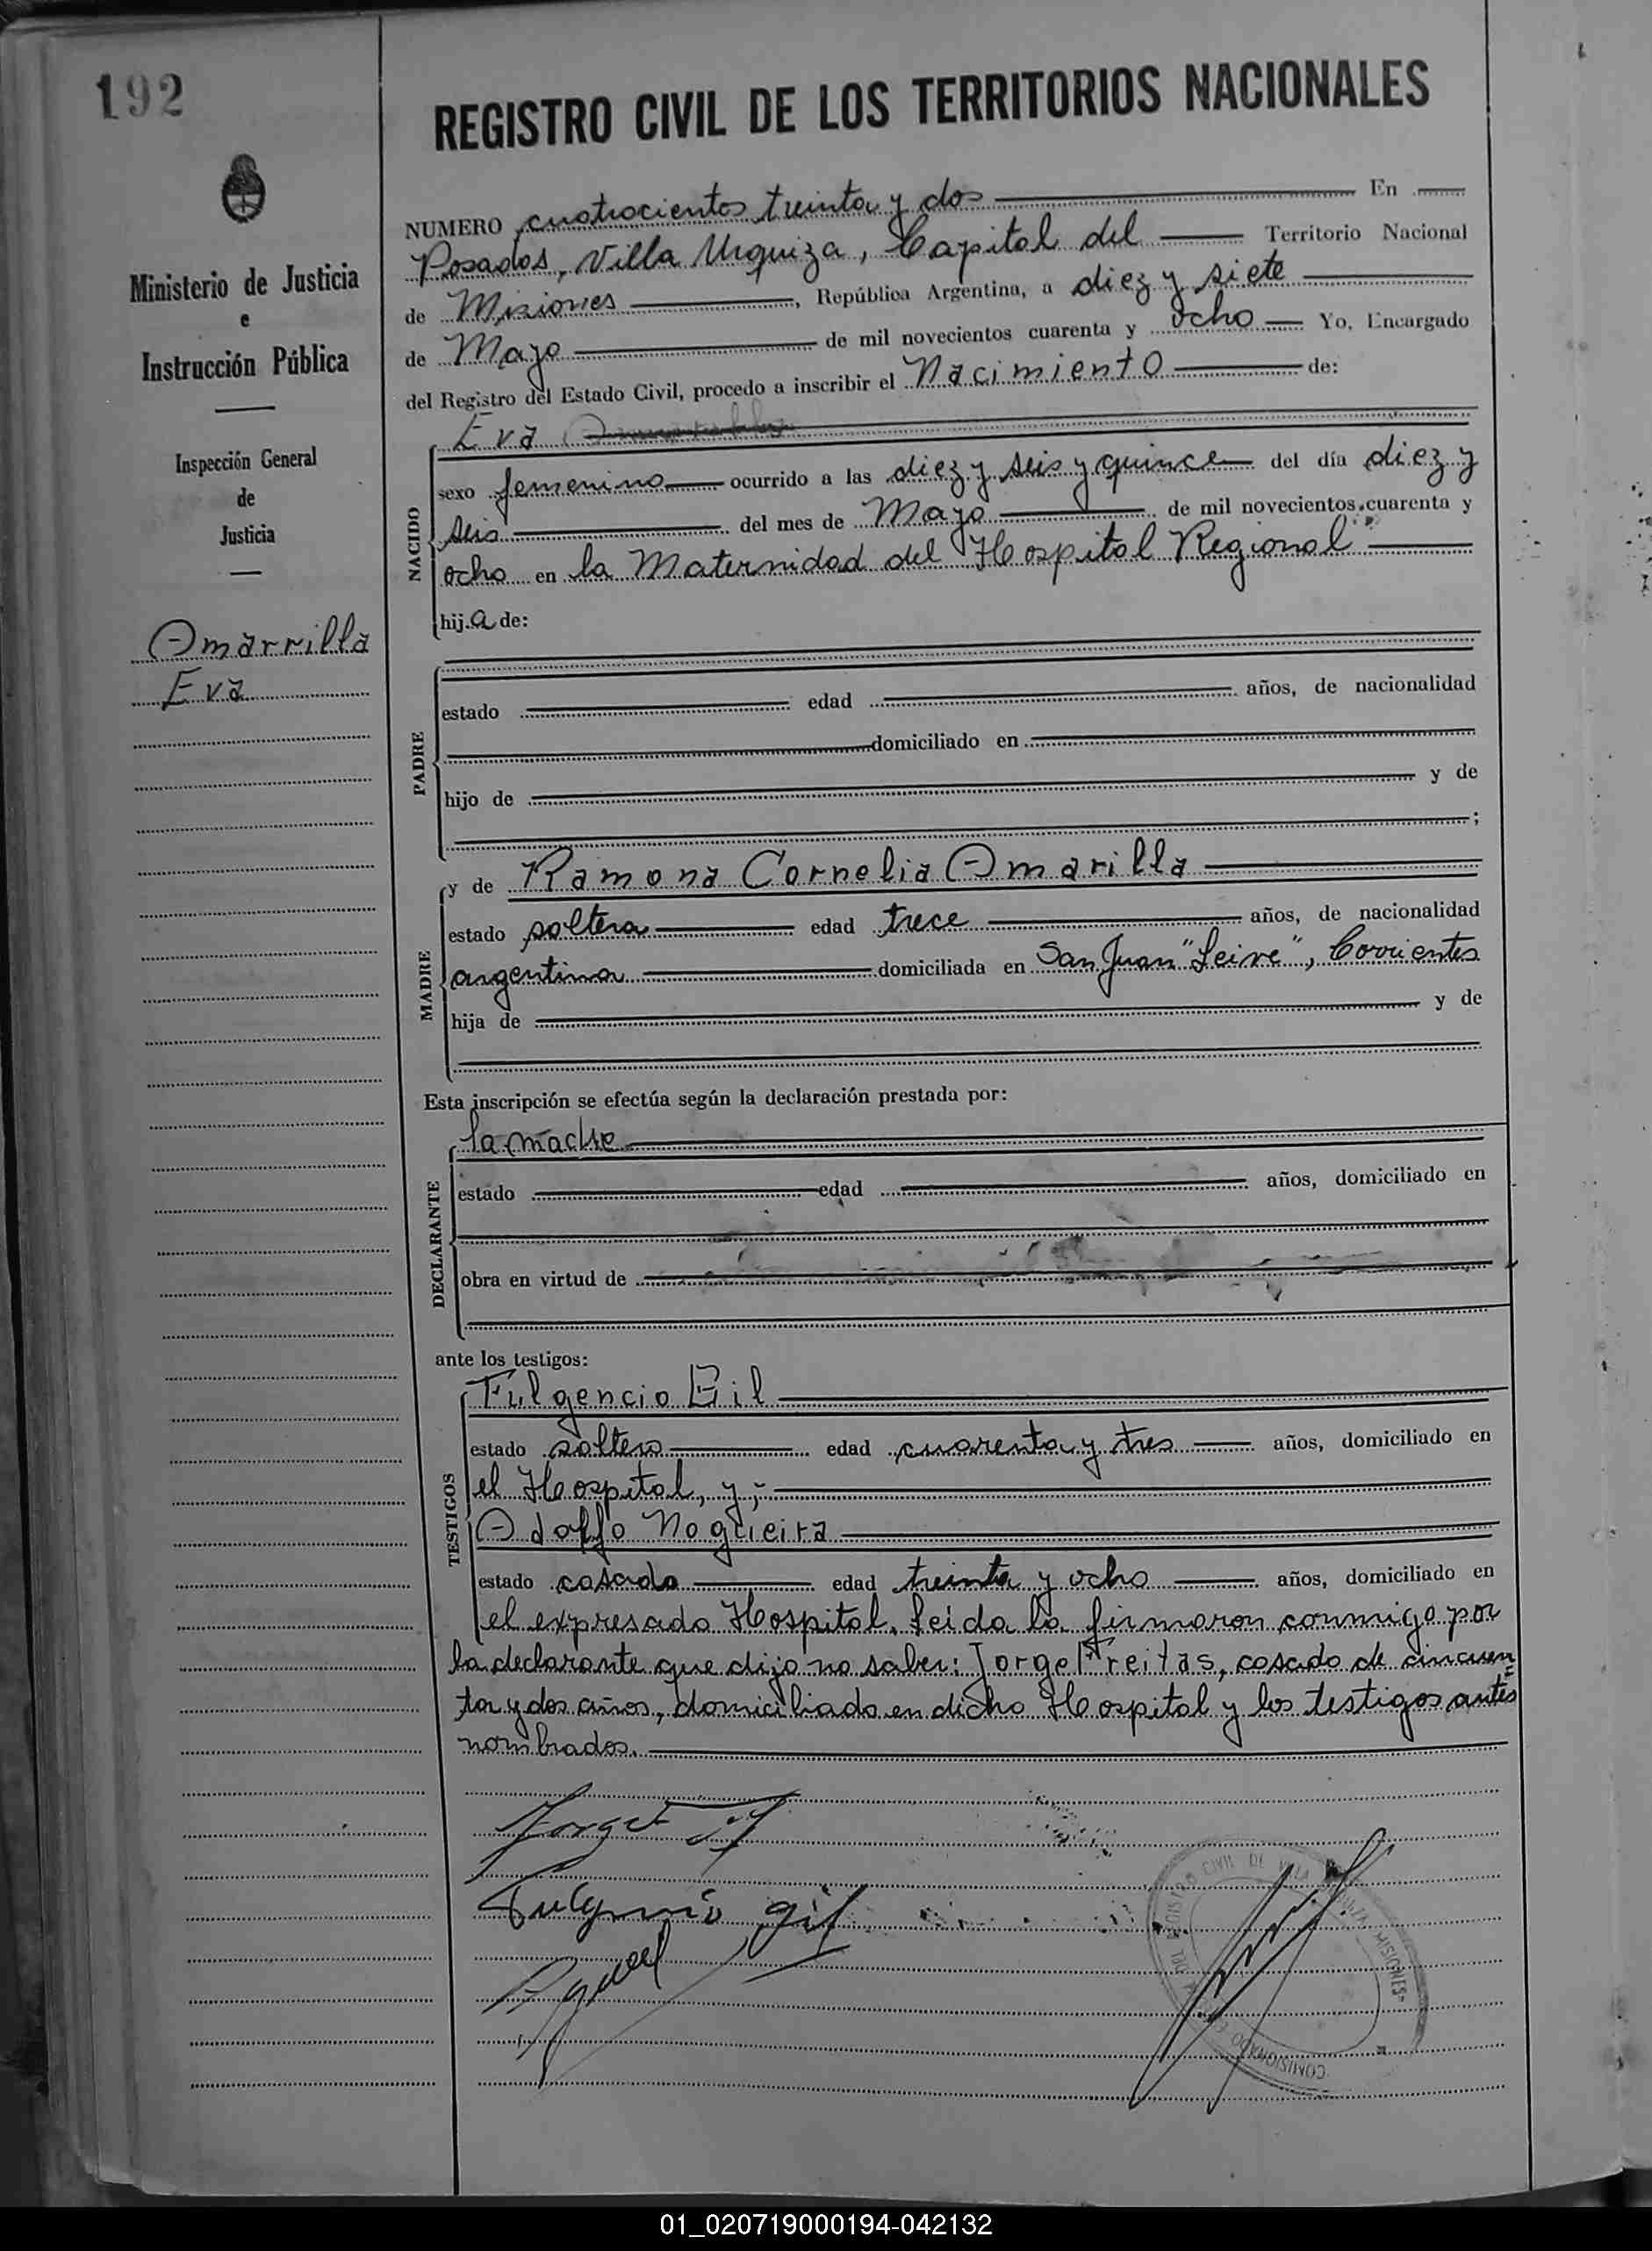 192
REGISTRO CIVIL DE LOS TERRITORIOS NACIONALES
Ministerio de Justicia
e
Instrucción Pública
Inspección General
de
Justicia
Amarrilla
Eva
NUMERO cuatrocientos treinta y dos En
Posadas, Villa Urquiza, Capital del Territorio Nacional
de Misiones, República Argentina, a diez y siete
de Mayo de mil novecientos cuarenta y ocho Yo, Encargado
del Registro del Estado Civil, procedo a inscribir el Nacimiento de:
Eva
NACIDO
sexo femenino ocurrido a las diez y seis y quince del día diez y
seis del mes de Mayo de mil novecientos cuarenta y
ocho en la Maternidad del Hospital Regional
hij.a de:
PADRE
estado edad años, de nacionalidad
domiciliado en
hijo de y de
;
MADRE
y de Ramona Cornelia Amarilla
estado soltera edad trece años, de nacionalidad
argentina domiciliada en San Juan "Leive", Corrientes
hija de y de
Esta inscripción se efectúa según la declaración prestada por:
DECLARANTE
la madre
estado edad años, domiciliado en
obra en virtud de
ante los testigos:
TESTIGOS
Fulgencio Gil
estado soltero edad cuarenta y tres años, domiciliado en
el Hospital, y;-
Adolfo Nogueira
estado casado edad treinta y ocho años, domiciliado en
el expresado Hospital. Leida la firmaron conmigo por
la declarante que dijo no saber: Jorge Freitas, casado de cincuen=
ta y dos años, domiciliado en dicho Hospital y los testigos antes
nombrados.
Jorge
Fulgencio Gil
REGISTRO CIVIL DE VILLA URQUIZA MISIONES
COMISIONADO
01_020719000194-042132